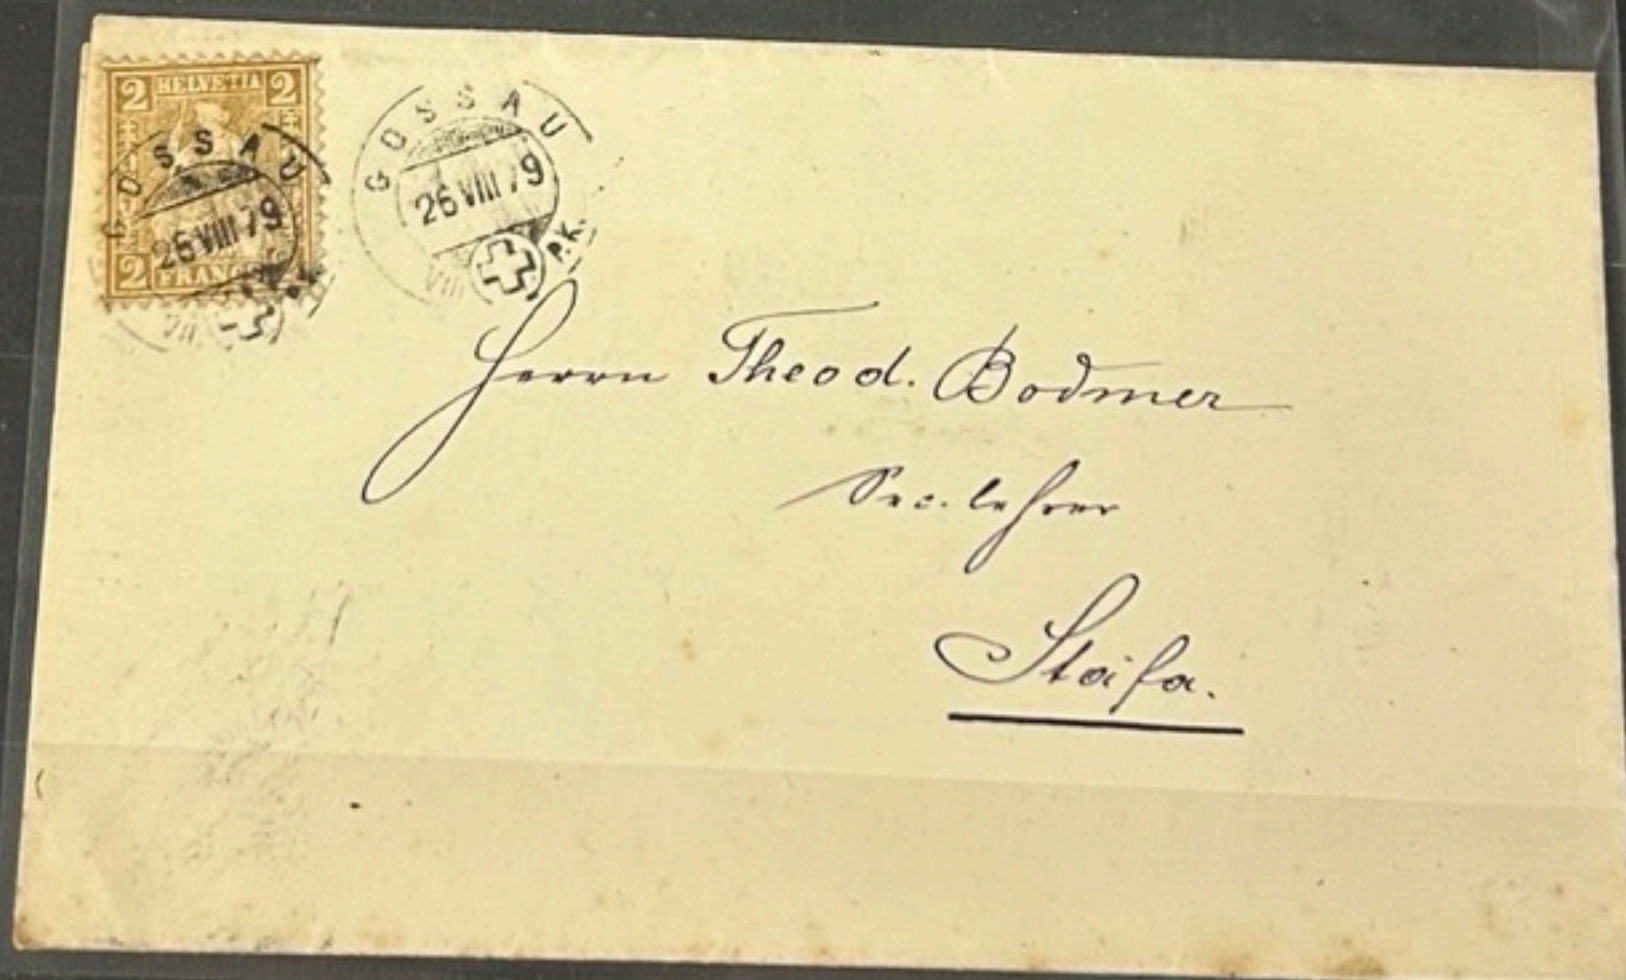 2 HELVETIA 2
GOSSAU
26 VIII 79
2 FRANC
GOSSAU
26 VIII 79
VIII P.K.
Herrn Theod. Bodmer
Sec. lehrer
Stäfa.